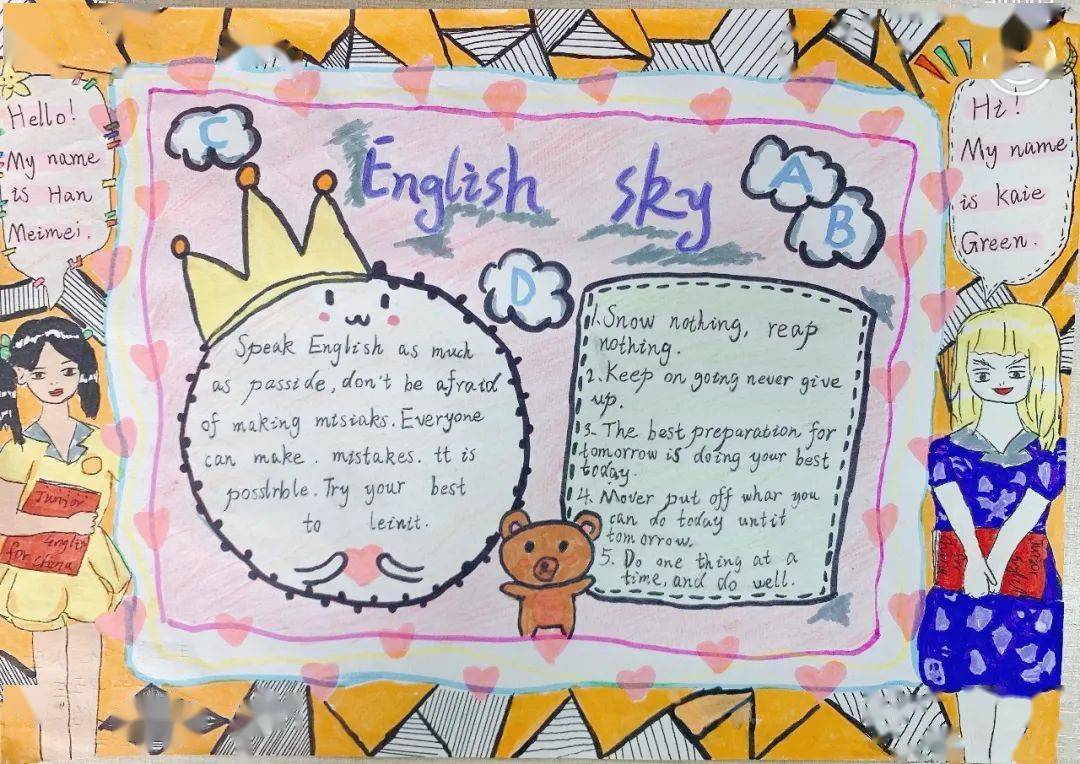 Hello!
My name
is Han
Meimei.
C
English sky
A
B
D
Hi!
My name
is kaie
Green.
Speak English as much
as passide, don't be afraid
of making misiaks. Everyone
can make. mistakes. tt is
posslrble. Try your best
to leinit.
1. Snow nothing, reap
nothing.
2. Keep on going never give
up.
3. The best preparation for
tomorrow is doing your best
today.
4. Mover put off whar you
can do today untit
tomorrow.
5. Do one thing at a
time, and do well.
Junior
English
for China